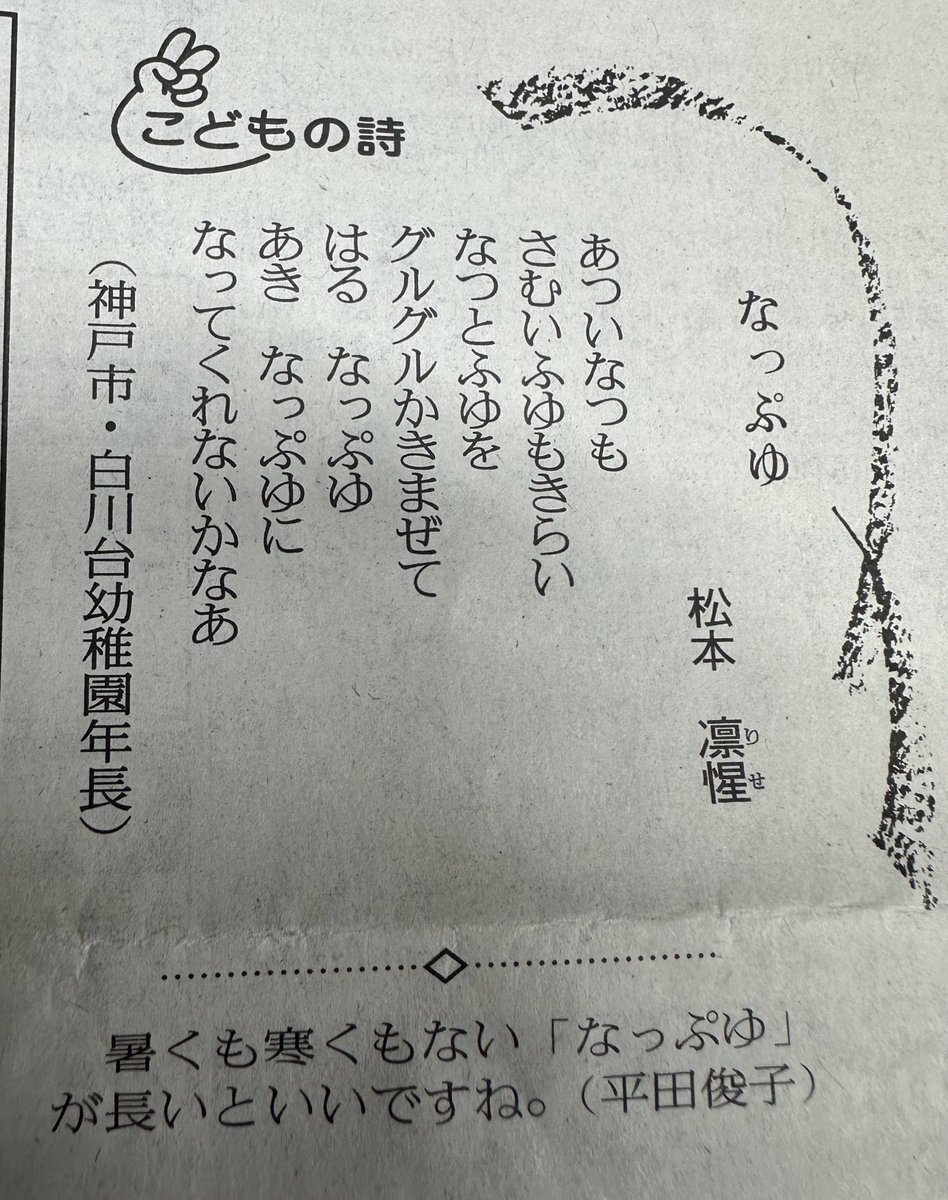 こどもの詩
なっぷゆ
松本　凛惺
りせ
あついなつも
さむいふゆもきらい
なつとふゆを
グルグルかきまぜて
はる　なっぷゆ
あき　なっぷゆに
なってくれないかなあ
（神戸市・白川台幼稚園年長）
暑くも寒くもない「なっぷゆ」
が長いといいですね。（平田俊子）